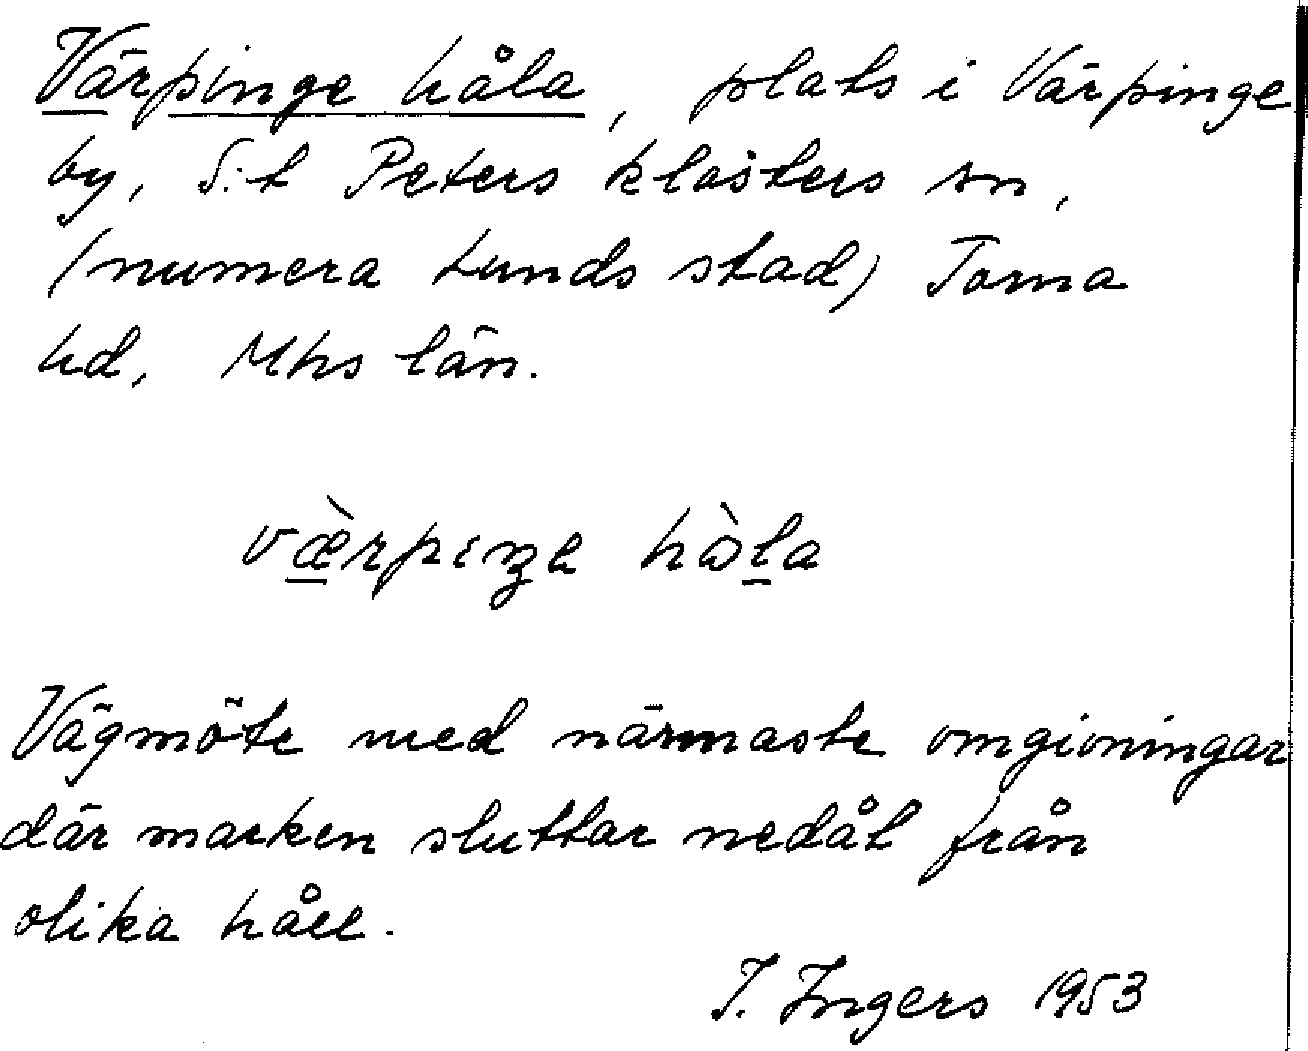 Värpinge håla, plats i Värpinge
by, S:t Peters klosters sn,
(numera Lunds stad) Torna
hd, Mhs län.
væ̀rpiŋe hɔ̀la
Vägmöte med närmaste omgivningar
där marken sluttar nedåt från
olika håll.
I. Ingers 1953